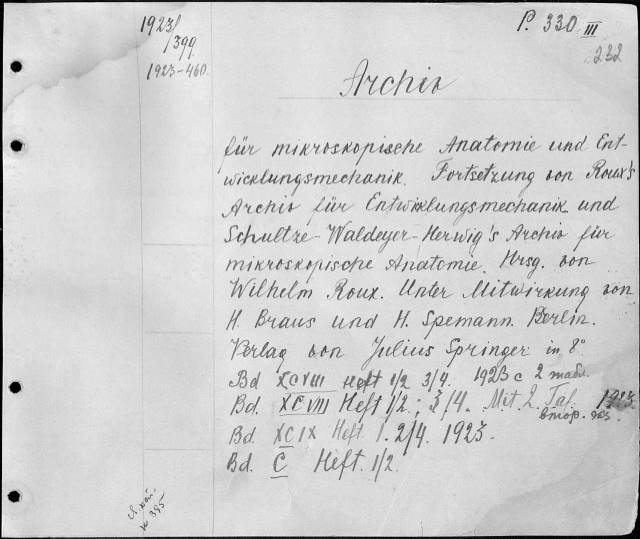 1923/
/399
1923-460.
P. 330 III
232
Archiv
für mikroskopische Anatomie und Ent-
wicklungsmechanik. Fortsetzung von Roux's
Archiv für Entwicklungsmechanik und
Schultze-Waldeyer-Herwig's Archiv für
mikroskopische Anatomie. Hrsg. von
Wilhelm Roux. Unter Mitwirkung von
H. Braus und H. Spemann. Berlin.
Verlag von Julius Springer in 8°
Bd XCVIII Heft 1/2 3/4. 1923 с 2 табл.
Bd. XCVIII Heft 1/2.; 3/4. Mit 2. Taf. 1923
втор. экз.
Bd XCIX Heft 1. 2/4. 1923.
Bd. C Heft. 1/2.
395